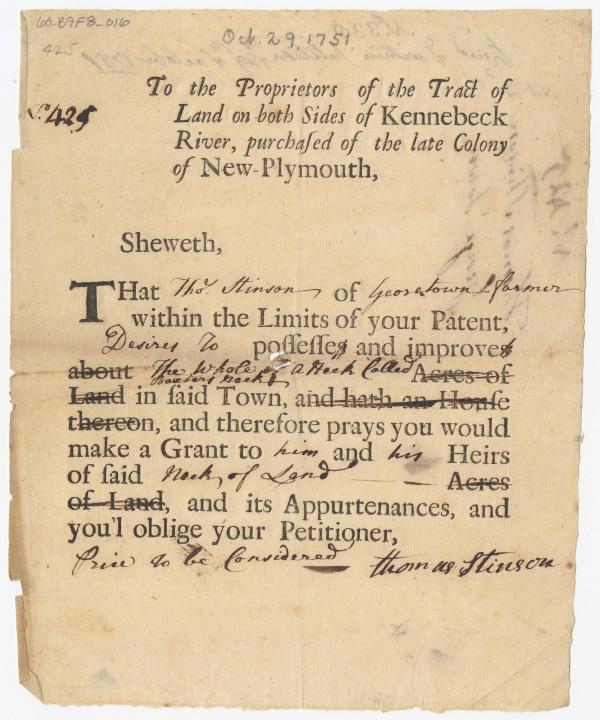 60-89F8-016
425
Oct. 29. 1751
No. 425
To the Proprietors of the Tract of
Land on both Sides of Kennebeck
River, purchaſed of the late Colony
of New-Plymouth,
Sheweth,
THat Thos. Stinson of Georgetown farmer
within the Limits of your Patent,
Desires to poſſeſſes and improves
about The Whole of a Neck Called Acres of
Neck
Land in ſaid Town, and hath an Houſe
thereon, and therefore prays you would
make a Grant to him and his Heirs
of ſaid Neck of Land Acres
of Land, and its Appurtenances, and
you'l oblige your Petitioner,
Price to be Considered Thomas Stinson